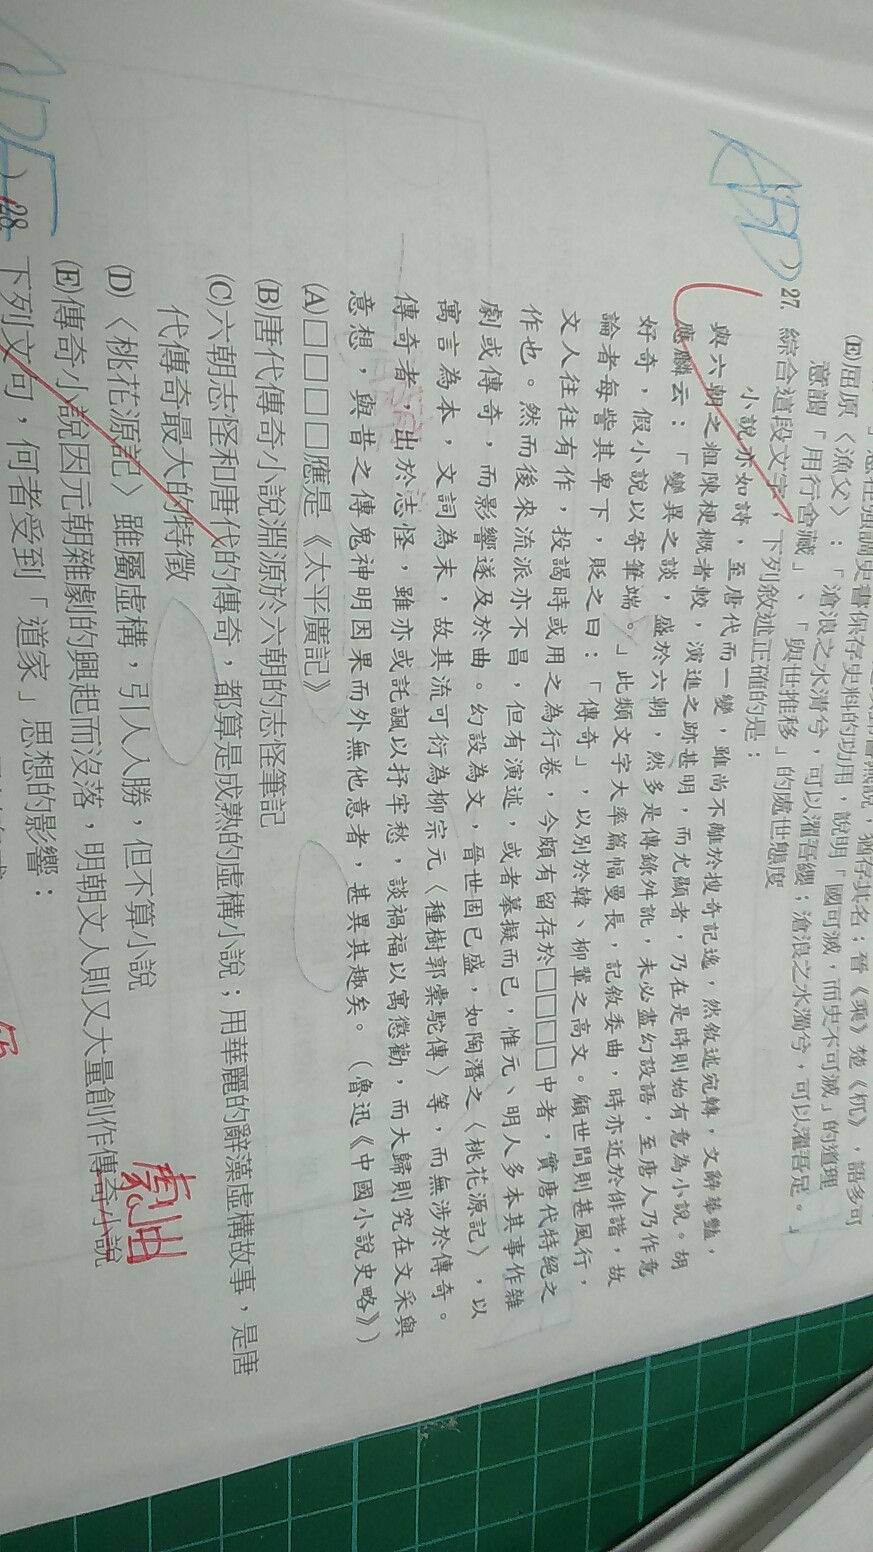 史書保存史料的功用，說明「國可滅，而史不可滅」的道理
(E)屈原〈漁父〉：「滄浪之水清兮，可以濯吾纓；滄浪之水濁兮，可以濯吾足。」
意謂「用行舍藏」、「與世推移」的處世態度
ABD
)27. 綜合這段文字，下列敘述正確的是：
小說亦如詩，至唐代而一變，雖尚不離於搜奇記逸，然敘述宛轉，文辭華豔，
與六朝之粗陳梗概者較，演進之跡甚明，而尤顯者，乃在是時則始有意為小說。胡
應麟云：「變異之談，盛於六朝，然多是傳錄舛訛，未必盡幻設語，至唐人乃作意
好奇，假小說以寄筆端。」此類文字大率篇幅曼長，記敘委曲，時亦近於俳諧，故
論者每訾其卑下，貶之曰：「傳奇」，以別於韓、柳輩之高文。顧世間則甚風行，
文人往往有作，投謁時或用之為行卷，今頗有留存於□□□□中者，實唐代特絕之
作也。然而後來流派亦不昌，但有演述，或者摹擬而已，惟元、明人多本其事作雜
劇或傳奇，而影響遂及於曲。幻設為文，晉世固已盛，如陶潛之〈桃花源記〉，以
寓言為本，文詞為末，故其流可衍為柳宗元〈種樹郭橐駝傳〉等，而無涉於傳奇。
傳奇者，出於志怪，雖亦或託諷以抒牢愁，談禍福以寓懲勸，而大歸則究在文采與
意想，與昔之傳鬼神明因果而外無他意者，甚異其趣矣。（魯迅《中國小說史略》）
(A)□□□□應是《太平廣記》
(B)唐代傳奇小說淵源於六朝的志怪筆記
(C)六朝志怪和唐代的傳奇，都算是成熟的虛構小說；用華麗的辭藻虛構故事，是唐
代傳奇最大的特徵
(D)〈桃花源記〉雖屬虛構，引人入勝，但不算小說
(E)傳奇小說因元朝雜劇的興起而沒落，明朝文人則又大量創作傳奇小說
劇曲
ADE
)28. 下列文句，何者受到「道家」思想的影響：